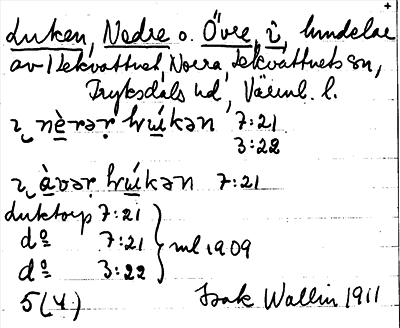 Luken, Nedre o. Övre, i, hundelar
av 1 Lekvattnet, Norra, Lekvattnets sn,
Fryksdals hd, Värml. l.
7:21
3:22
7:21
Luktorp 7:21
do 7:21
do 3:22
ml 1909
5(4)
Isak Wallin 1911